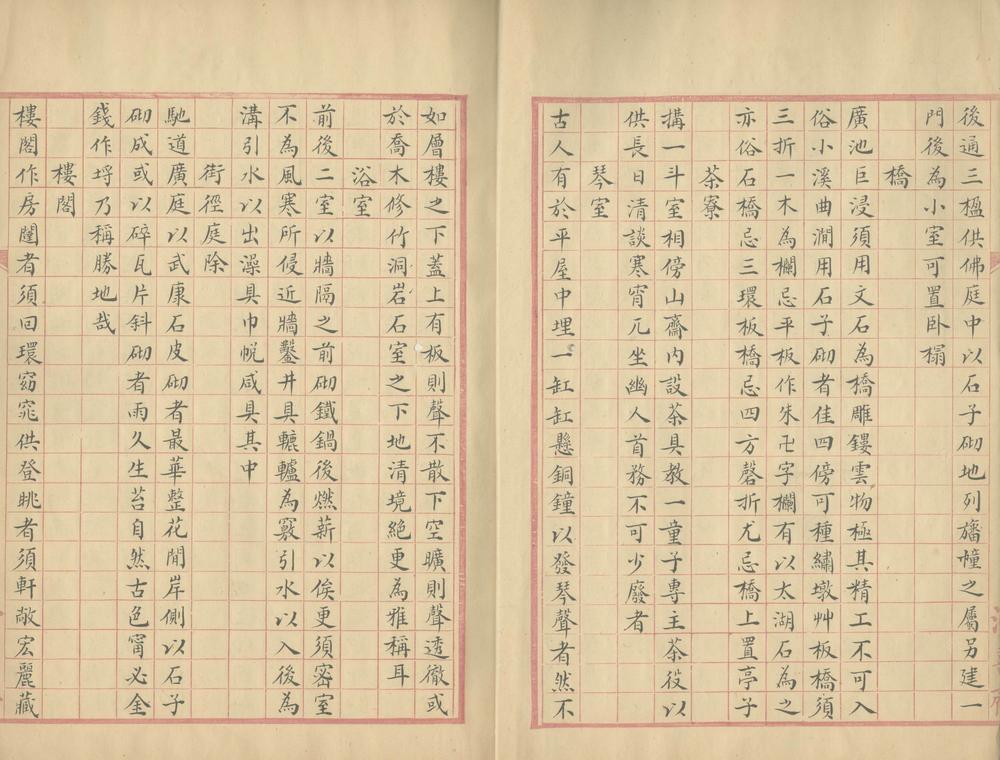 後通三楹供佛庭中以石子砌地列旛幢之屬另建一
門後為小室可置卧榻
橋
廣池巨浸須用文石為橋雕鏤雲物極其精工不可入
俗小溪曲澗用石子砌者佳四傍可種繡墩艸板橋須
三折一木為欄忌平板作朱卍字欄有以太湖石為之
亦俗石橋忌三環板橋忌四方磬折尤忌橋上置亭子
茶寮
搆一斗室相傍山齋内設茶具教一童子專主茶役以
供長日清談寒宵兀坐幽人首務不可少廢者
琴室
古人有於平屋中埋一缸缸懸銅鐘以發琴聲者然不
如層樓之下蓋上有板則聲不散下空曠則聲透徹或
於喬木修竹洞岩石室之下地清境絕更為雅稱耳
浴室
前後二室以牆隔之前砌鐵鍋後燃薪以俟更須密室
不為風寒所侵近牆鑿井具轆轤為竅引水以入後為
溝引水以出澡具巾帨咸具其中
街徑庭除
馳道廣庭以武康石皮砌者最華整花間岸側以石子
砌成或以碎瓦片斜砌者雨久生苔自然古色甯必金
錢作埒乃稱勝地哉
樓閣
樓閣作房闥者須回環窈窕供登眺者須軒敞宏麗藏